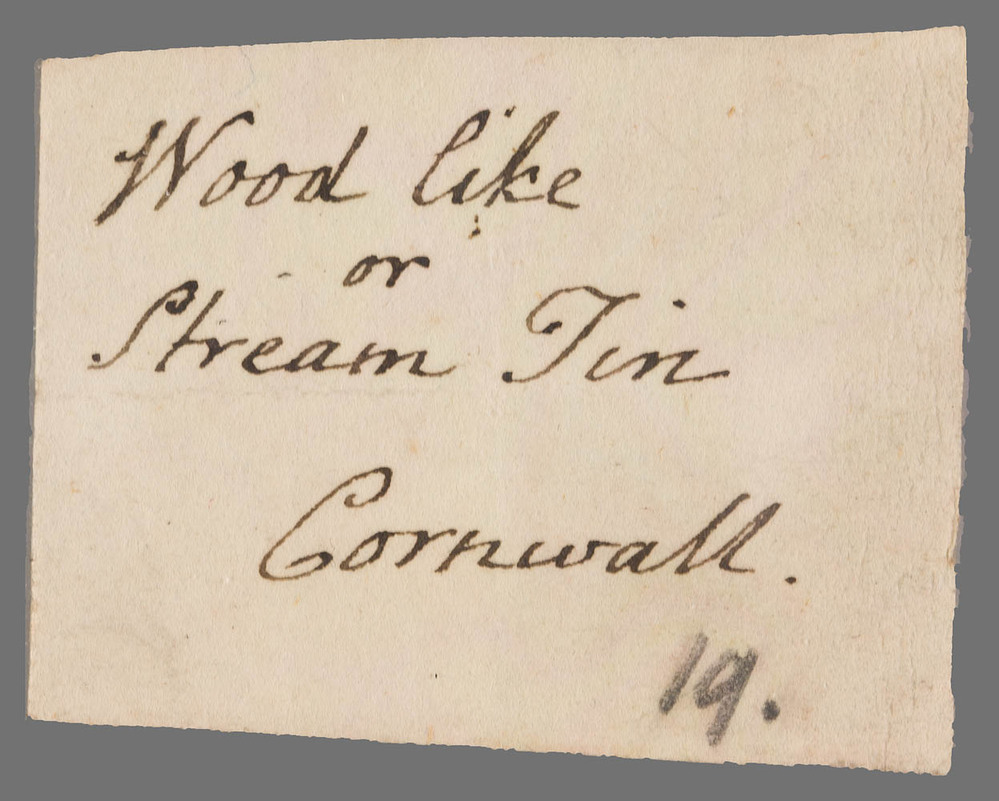 Wood like
or
Stream Tin
Cornwall.
19.